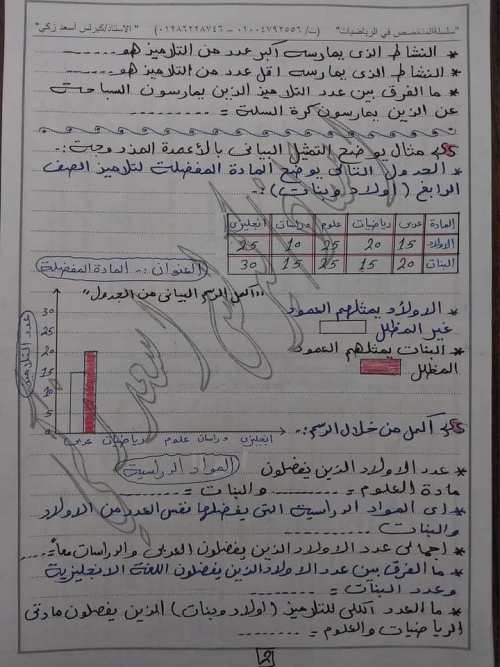 "سلسلة المتخصص في الرياضيات" (ت/ ٠١٠٠٤٧٩٢٥٥٦ - ٠١٢٨٦٢٢٨٧٤٦) "الأستاذ/كيرلس أسعد زكي"
* النشاط الذى يمارسه أكبر عدد من التلاميذ هو........
* النشاط الذى يمارسه اقل عدد من التلاميذ هو........
* ما الفرق بين عدد التلاميذ الذين يمارسون السباحة
عن الذين يمارسون كرة السلة = ..........
مثال يوضح التمثيل البيانى بالأعمدة المزدوجة:-
* الجدول التالى يوضح المادة المفضلة لتلاميذ الصف
الرابع (أولاد وبنات):-
المادة عربى رياضيات علوم دراسات انجليزى
الاولاد 15 20 25 10 25
البنات 20 15 25 15 30
العنوان :- المادة المفضلة
"أكمل الرسم البيانى من الجدول"
* الاولاد يمثلهم العمود
غير المظلل
* البنات يمثلهم العمود
المظلل
عدد التلاميذ
30
25
20
15
10
5
0
عربى رياضيات علوم دراسات انجليزى
المواد الدراسية
أكمل من خلال الرسم:-
* عدد الاولاد الذين يفضلون
مادة العلوم = ........ والبنات = ........
* اى المواد الدراسية التى يفضلها نفس العدد من الاولاد
والبنات ..........
* اجمالى عدد الاولاد الذين يفضلون العربى والدراسات معاً=....
* ما الفرق بين عدد الاولاد الذين يفضلون اللغة الانجليزية
وعدد البنات = ..........
* ما العدد الكلى للتلاميذ (اولاد وبنات) الذين يفضلون مادتى
الرياضيات والعلوم = ........